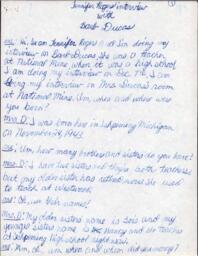 Jennifer Rogers' interview
with
Barb Ducas
me: Hi, I am Jennifer Rogers and I'm doing my
interview on Barb Ducas she was a teacher
at National Mine when it was a high school
I am doing my interview on Dec. I am
doing my interview in Mrs. Ducas's room
at National Mine. Um, when and where was
you born?
Mrs. D: I was born here in Ishpeming Michigan
on November
me: Um, how many brothers and sisters do you have?
Mrs. D: I have two sisters and they're both teachers
but my older sister has retired now she used
to teach at
me: Oh, um their name?
Mrs. D: My older sisters name is Lois and my
younger sisters name is Nancy and she teaches
at Ishpeming high school right now.
me: Um, ok, um when and whom did you marry?